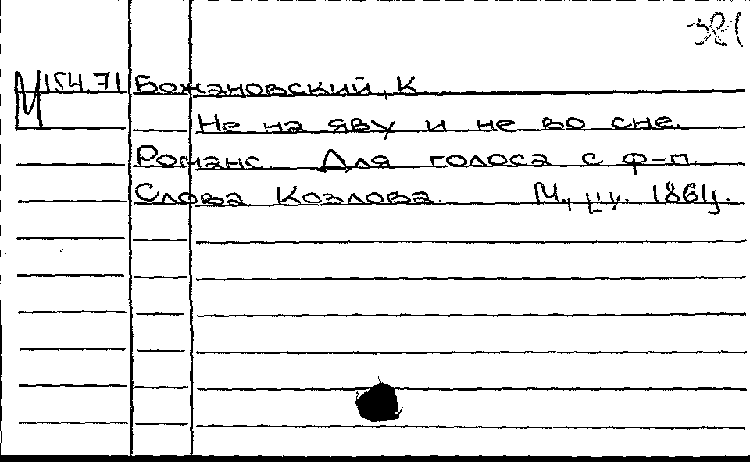 381
М 154.71 Божановский, К
Не на яву и не во сне.
Романс. Для голоса с ф-п.
Слова Козлова. М., ц.ц. 1861г.